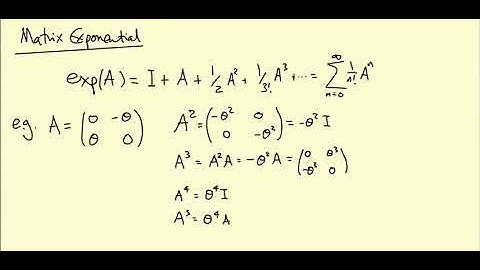 Matrix Exponential
exp(A) = I + A + 1/2 A² + 1/3! A³ + ... = ∑_{n=0}^{∞} 1/n! Aⁿ
e.g. A = (0 -θ; θ 0) A² = (-θ² 0; 0 -θ²) = -θ² I
A³ = A²A = -θ² A = (0 θ³; -θ³ 0)
A⁴ = θ⁴ I
A⁵ = θ⁴ A